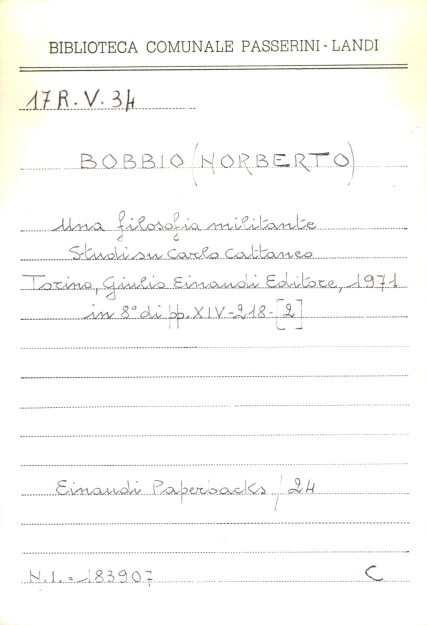 BIBLIOTECA COMUNALE PASSERINI - LANDI
17 R. V. 34
BOBBIO (NORBERTO)
Una filosofia militante
Studi su Carlo Cattaneo
Torino, Giulio Einaudi Editore, 1971
in 8° di pp. XIV-218-[2]
Einaudi Paperbacks, 24
N.I. = 183907 C